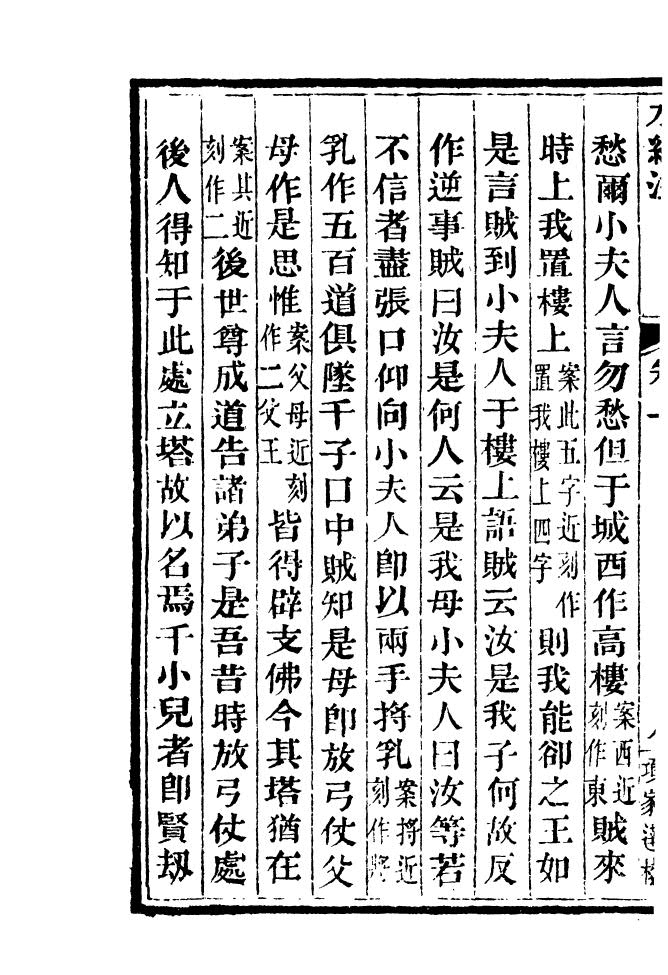 水經注 卷一
愁爾小夫人言勿愁但于城西作高樓案西近刻作東賊來
時上我置樓上案此五字近刻作置我樓上四字則我能卻之王如
是言賊到小夫人于樓上語賊云汝是我子何故反
作逆事賊曰汝是何人云是我母小夫人曰汝等若
不信者盡張口仰向小夫人卽以兩手捋乳案捋近刻作將
乳作五百道俱墜千子口中賊知是母卽放弓仗父
母作是思惟案父母近刻作二父王皆得辟支佛今其塔猶在
案其近刻作二後世尊成道告諸弟子是吾昔時放弓仗處
後人得知于此處立塔故以名焉千小兒者卽賢劫